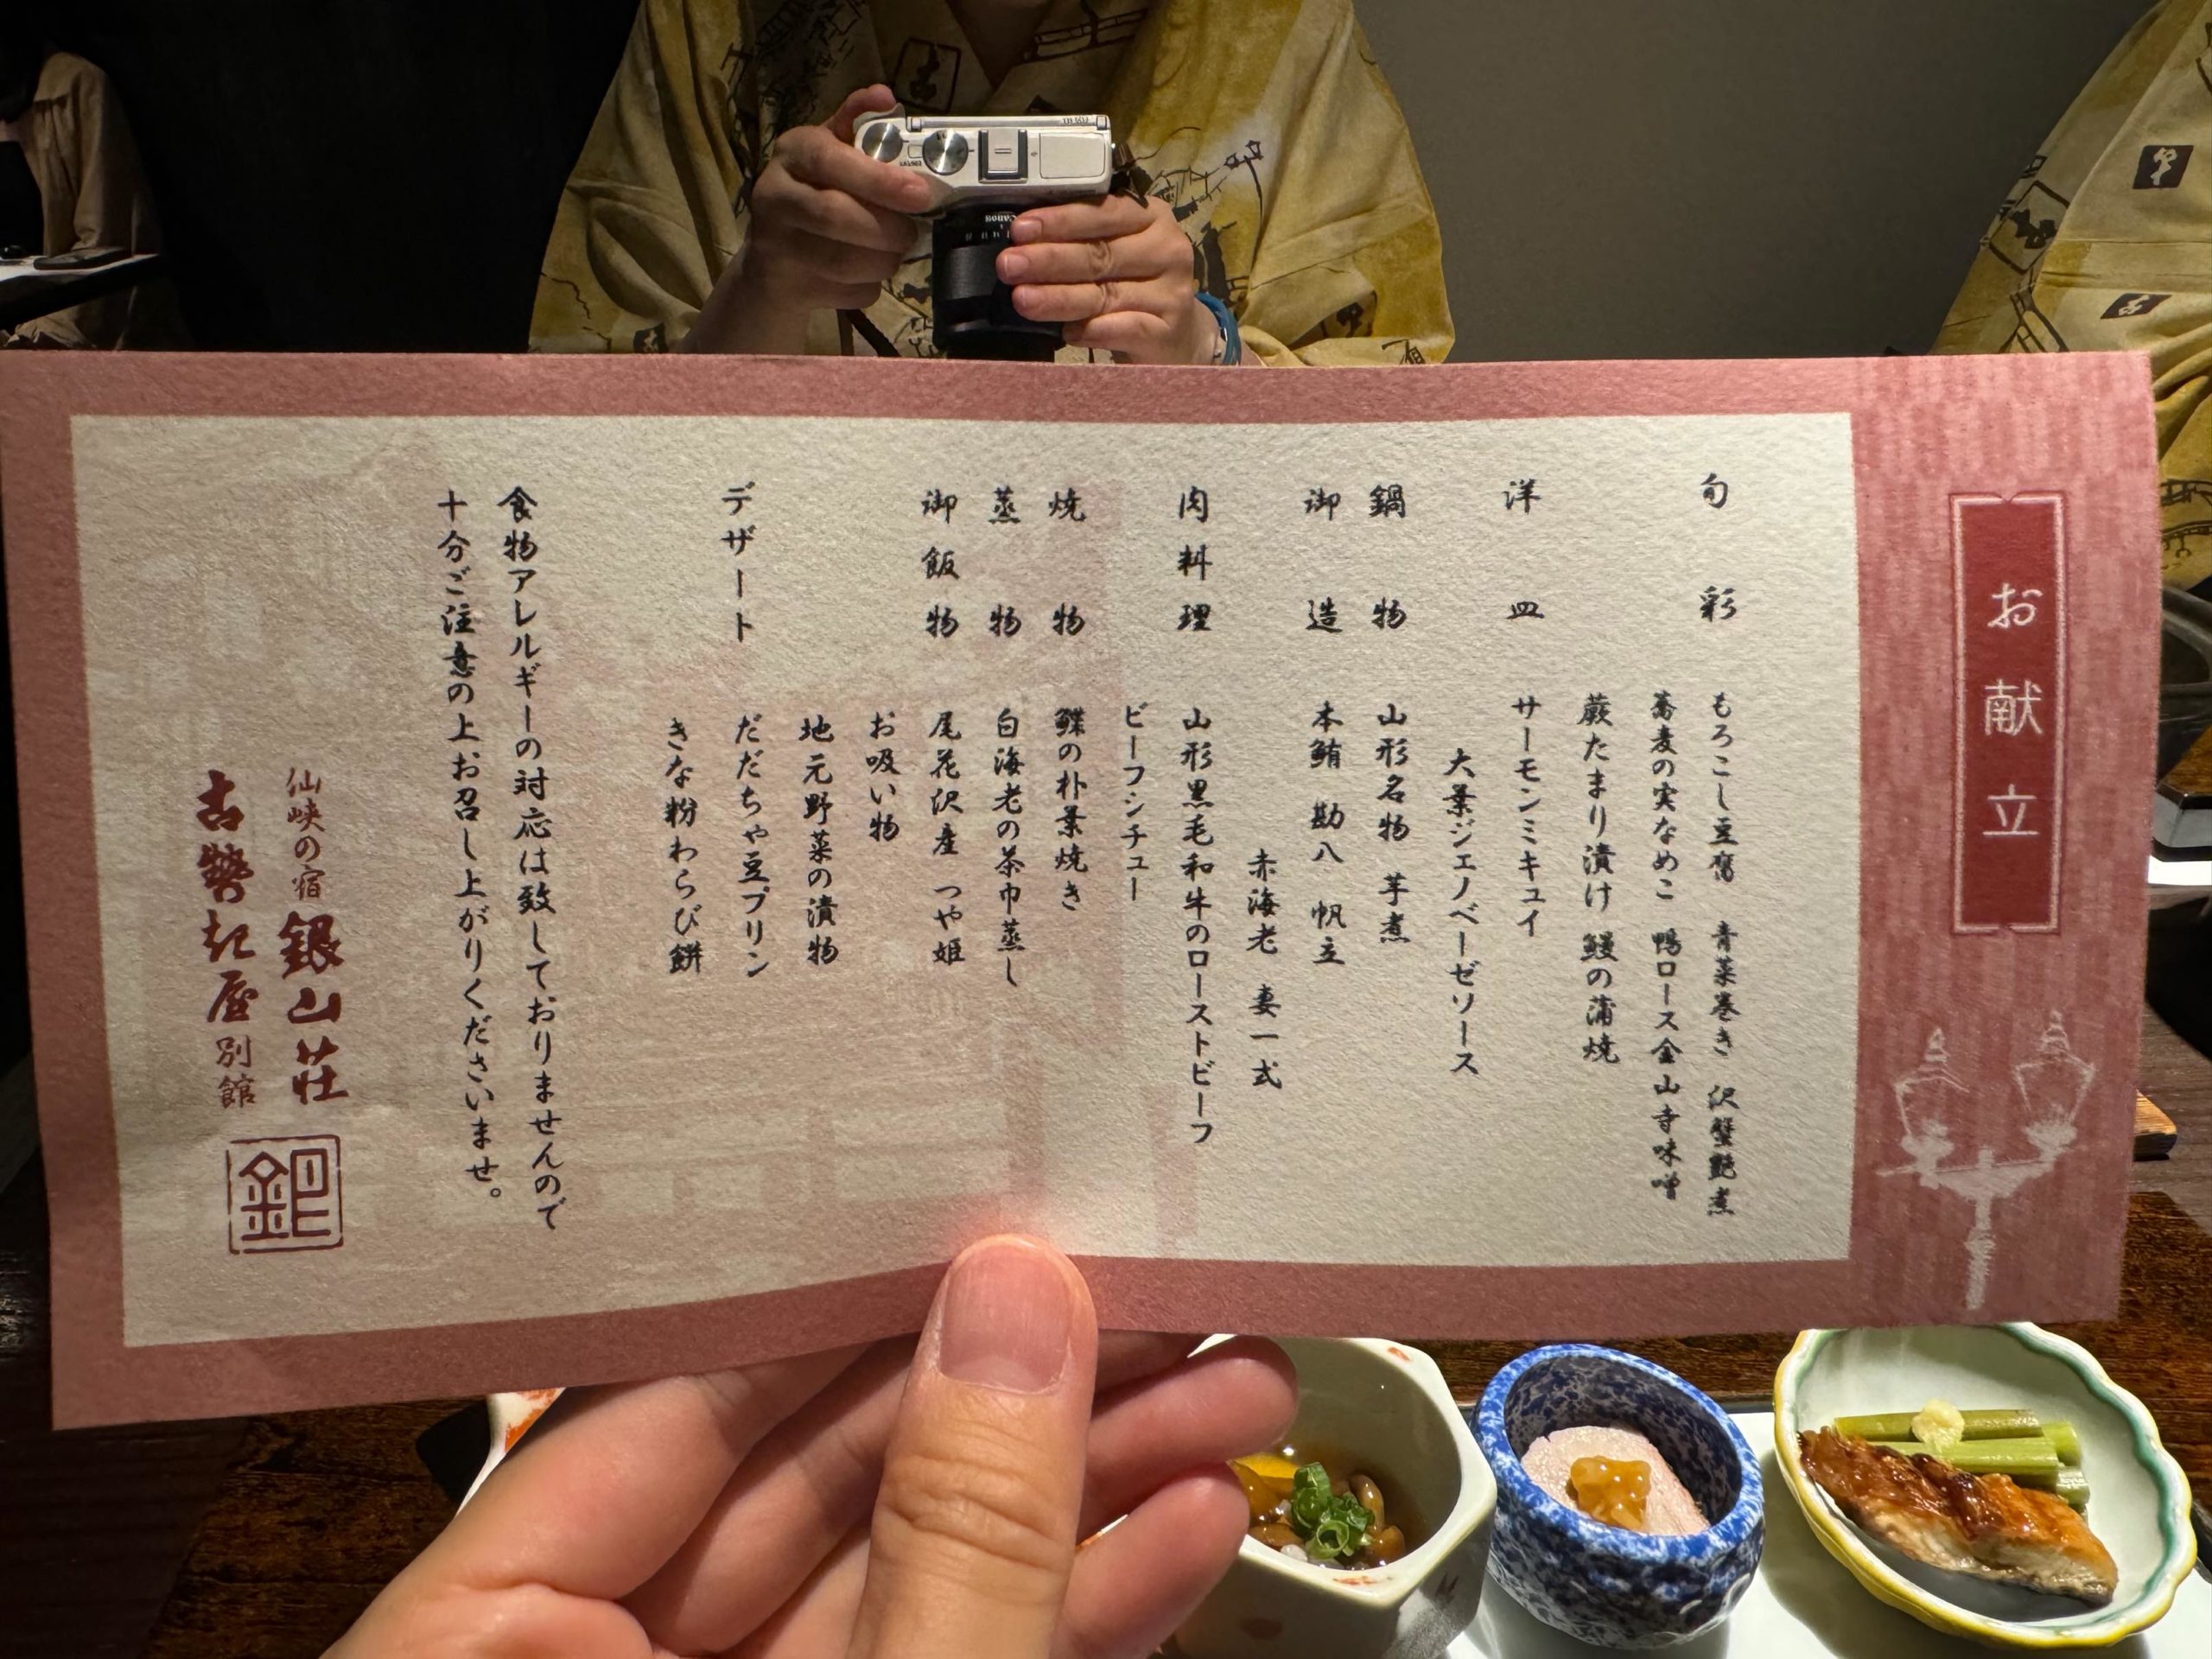 お献立
旬彩 もろこし豆腐 青菜巻き 沢蟹艶煮
蕎麦の実なめこ 鴨ロース金山寺味噌
蕨たまり漬け 鰻の蒲焼
洋皿 サーモンミキュイ
大葉ジェノベーゼソース
鍋物 山形名物 芋煮
御造 本鮪 勘八 帆立
赤海老 妻一式
肉料理 山形黒毛和牛のローストビーフ
ビーフシチュー
焼物 鰈の朴葉焼き
蒸物 白海老の茶巾蒸し
御飯物 尾花沢産 つや姫
お吸い物
地元野菜の漬物
デザート だだちゃ豆プリン
きな粉わらび餅
食物アレルギーの対応は致しておりませんので
十分ご注意の上お召し上がりくださいませ。
仙峡の宿 銀山荘
古勢起屋 別館
銀
Canon